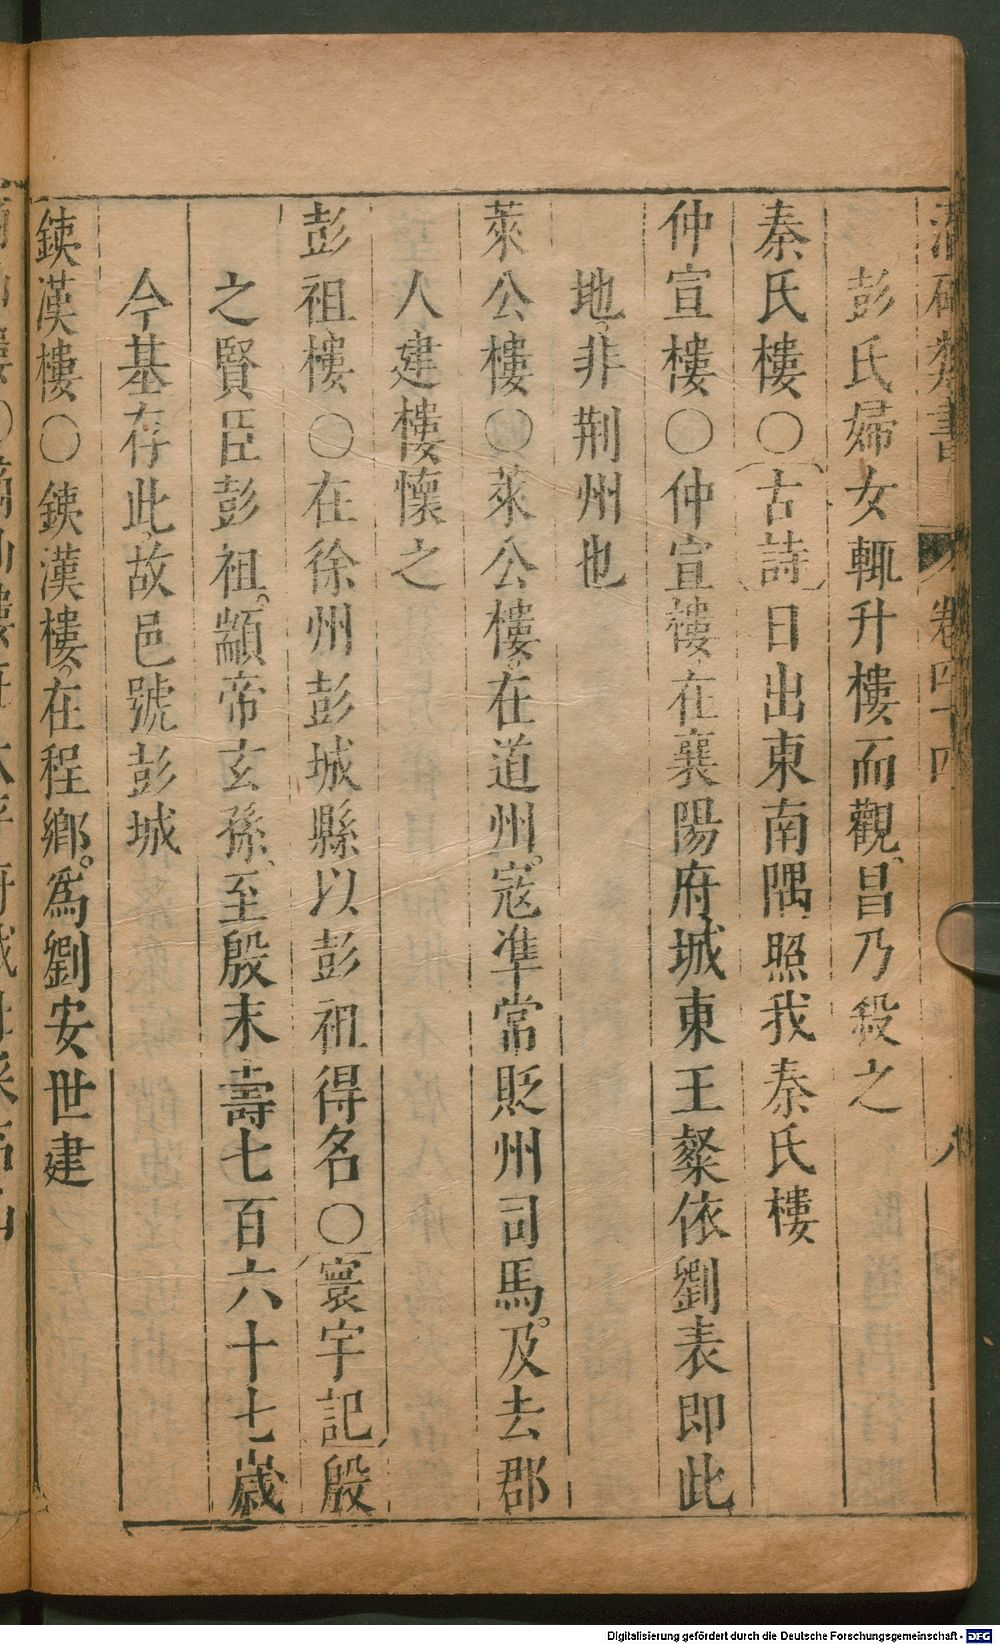 潛確類書 卷四十四 八
彭氏婦女輒升樓而觀昌乃殺之
秦氏樓○古詩日出東南隅照我秦氏樓
仲宣樓○仲宣樓在襄陽府城東王粲依劉表即此
地非荆州也
萊公樓○萊公樓在道州。寇準常貶州司馬。及去郡
人建樓懷之
彭祖樓○在徐州彭城縣以彭祖得名○寰宇記殷
之賢臣彭祖。顓帝玄孫、至殷末壽七百六十七歲
今基存此故邑號彭城
鋏漢樓○鋏漢樓。在程鄉。爲劉安世建
Digitalisierung gefördert durch die Deutsche Forschungsgemeinschaft - DFG